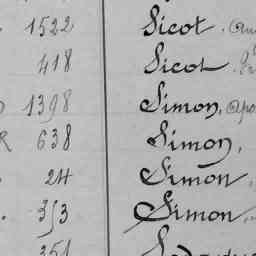 1522 Sicot
418 Sicot
1398 Simon,
638 Simon,
24 Simon,
353 Simon
351